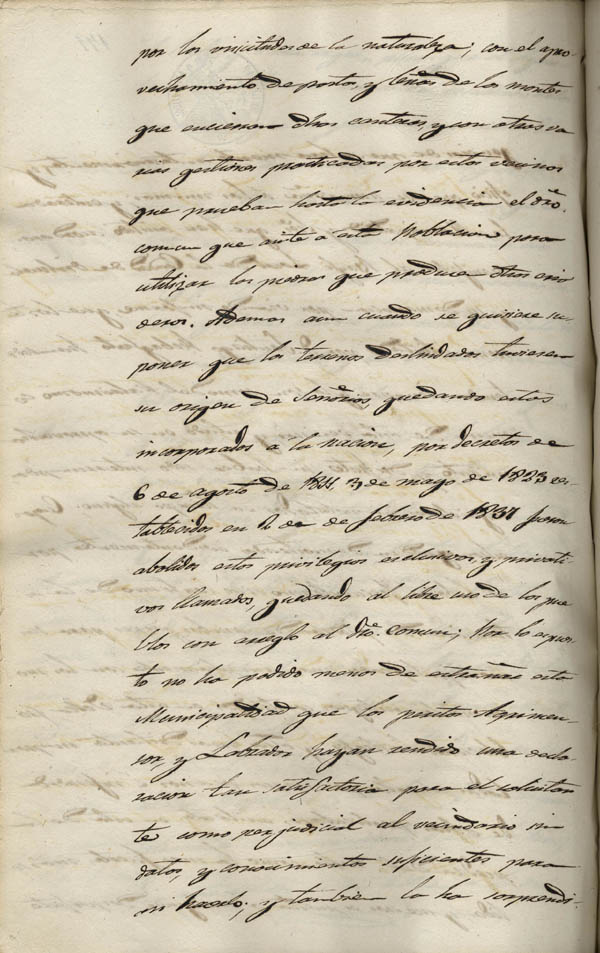 por los vicicitudes de la naturaleza; con el apro-
vechamiento de pastos, y leñas de los montes
que encierran dhas canteras y con otras va
rias gestiones practicadas por estos vecinos
que prueban hasta la evidencia el dro.
comun que asite a esta Poblacion para
utilizar las piedras que produce dhos cria
deros. Ademas aun cuando se quisiere su-
poner que los terrenos deslindados tuvieren
su origen de Señorios, quedando estos
incorporados a la nacion, por decretos de
6 de agosto de 1811, 3 de mayo de 1823 res-
tablecidos en 2 de de febrero de 1837 fueron
abolidos estos privilegios esclusivos, y privati-
vos llamados, quedando al libre uso de los pue
blos con arreglo al dro. comun; Por lo espues-
to no ha podido menos de estrañar esta
Municipalidad que los peritos Agrimen-
sor, y Labrador hayan rendido una decla-
racion tan satisfactoria para el solicitan
te como perjudicial al vecindario sin
datos, y conocimientos suficientes para
hacerlo; y tambien la ha sorprendi-